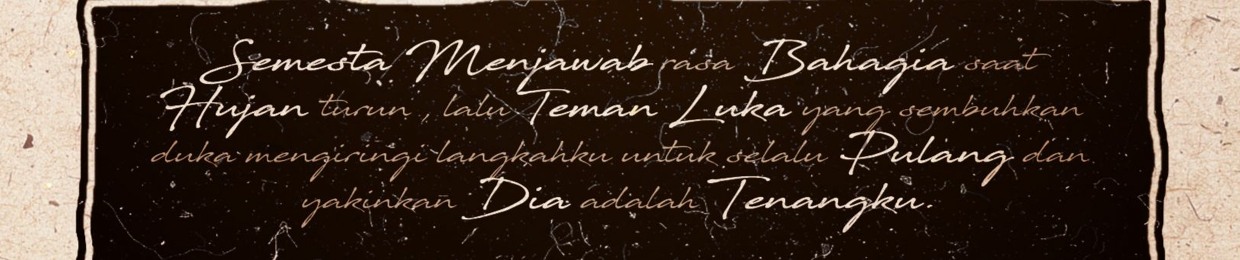 Semesta Menjawab rasa Bahagia saat
Hujan turun, lalu Teman Luka yang sembuhkan
duka mengiringi langkahku untuk selalu Pulang dan
yakinkan Dia adalah Tenangku.